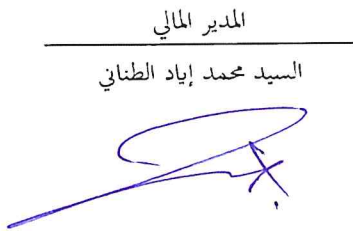 المدير المالي
السيد محمد إياد الطناني